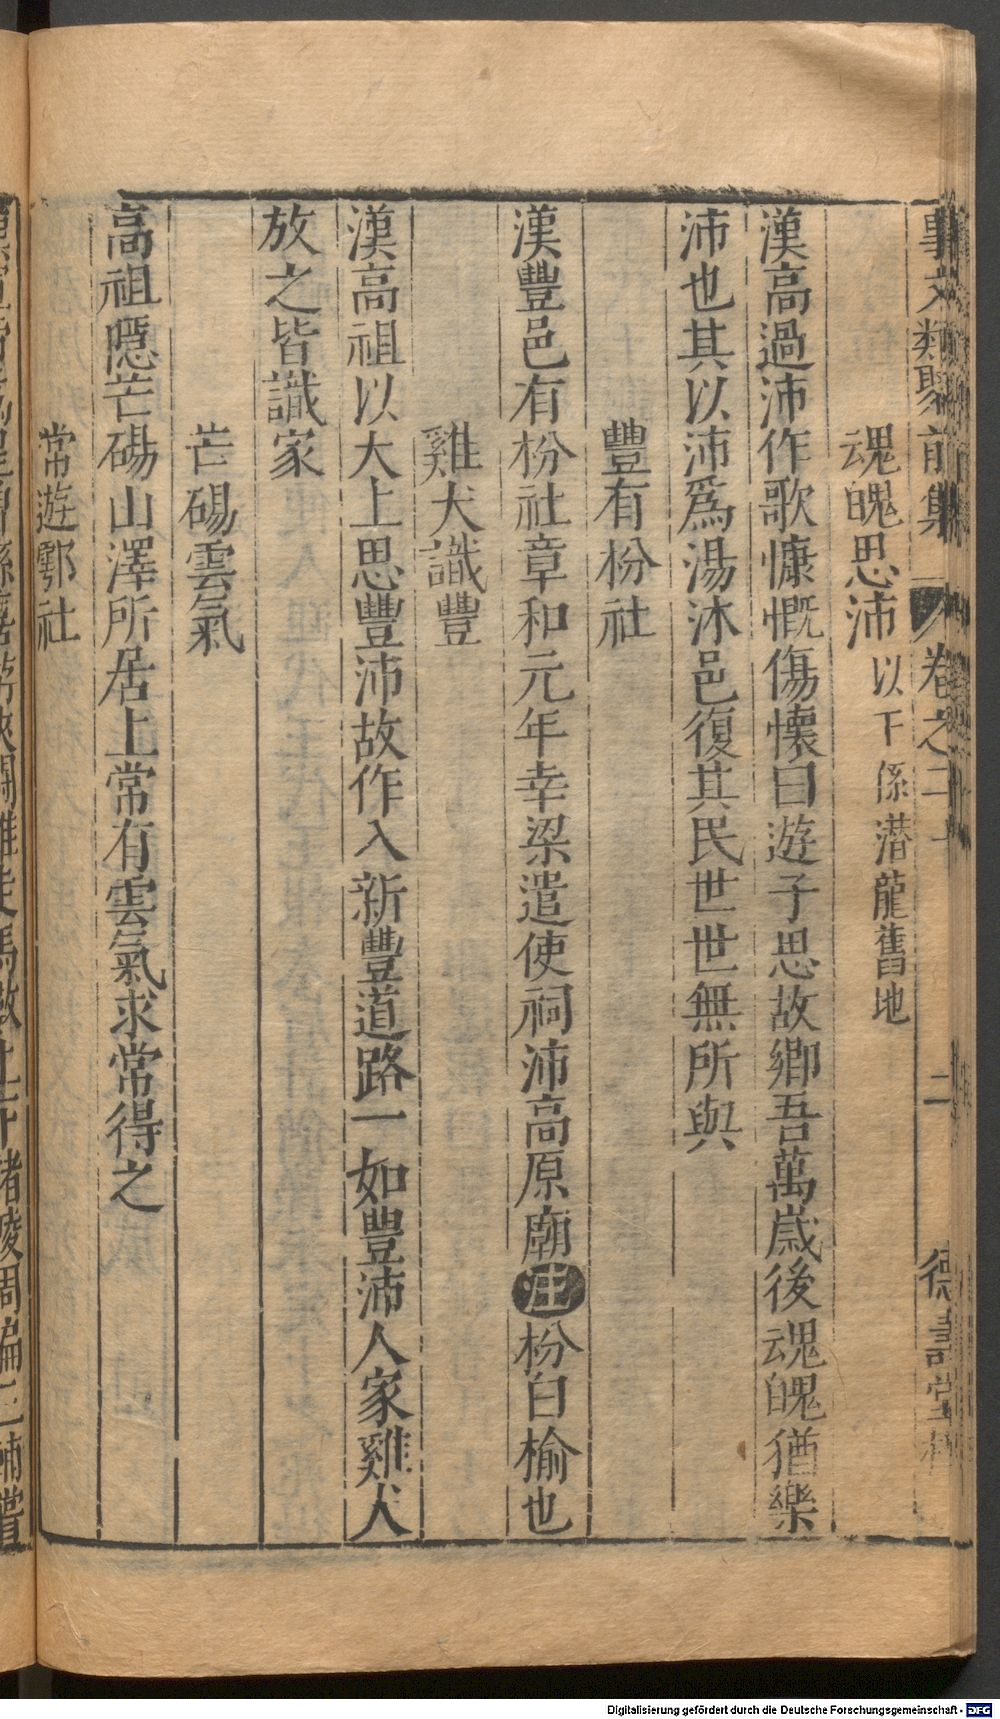 事文類聚前集 卷之二十 二 德壽堂梓
魂魄思沛 以下係潛龍舊地
漢高過沛作歌慷慨傷懷曰遊子思故鄉吾萬歲後魂魄猶樂
沛也其以沛爲湯沐邑復其民世世無所與
豐有枌社
漢豐邑有枌社章和元年幸梁遣使祠沛高原廟注枌白榆也
雞犬識豐
漢高祖以大上思豐沛故作入新豐道路一如豐沛人家雞犬
放之皆識家
芒碭雲氣
高祖隱芒碭山澤所居上常有雲氣求常得之
常遊鄠社
走馬 上下諸陵周徧三輔嘗
Digitalisierung gefördert durch die Deutsche Forschungsgemeinschaft - DFG